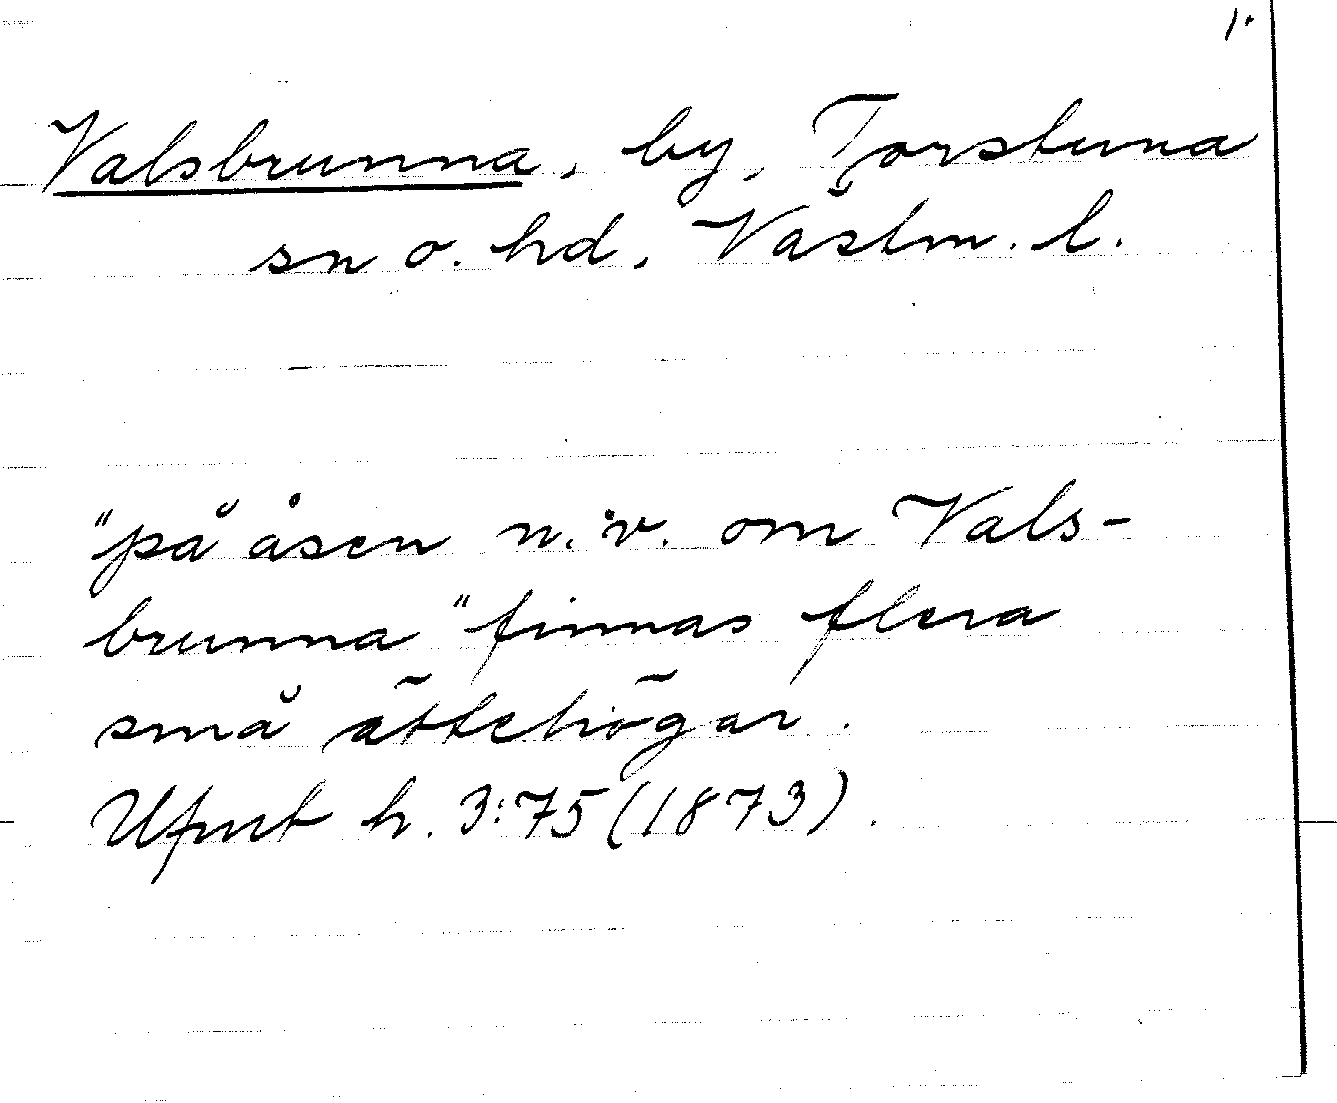 1.
Valsbrunna, by, Torstuna
sn o. hd, Västm. l.
"på åsen n.v. om Vals-
brunna" finnas flera
små ättehögar.
Ufmt h. 3:75 (1873).